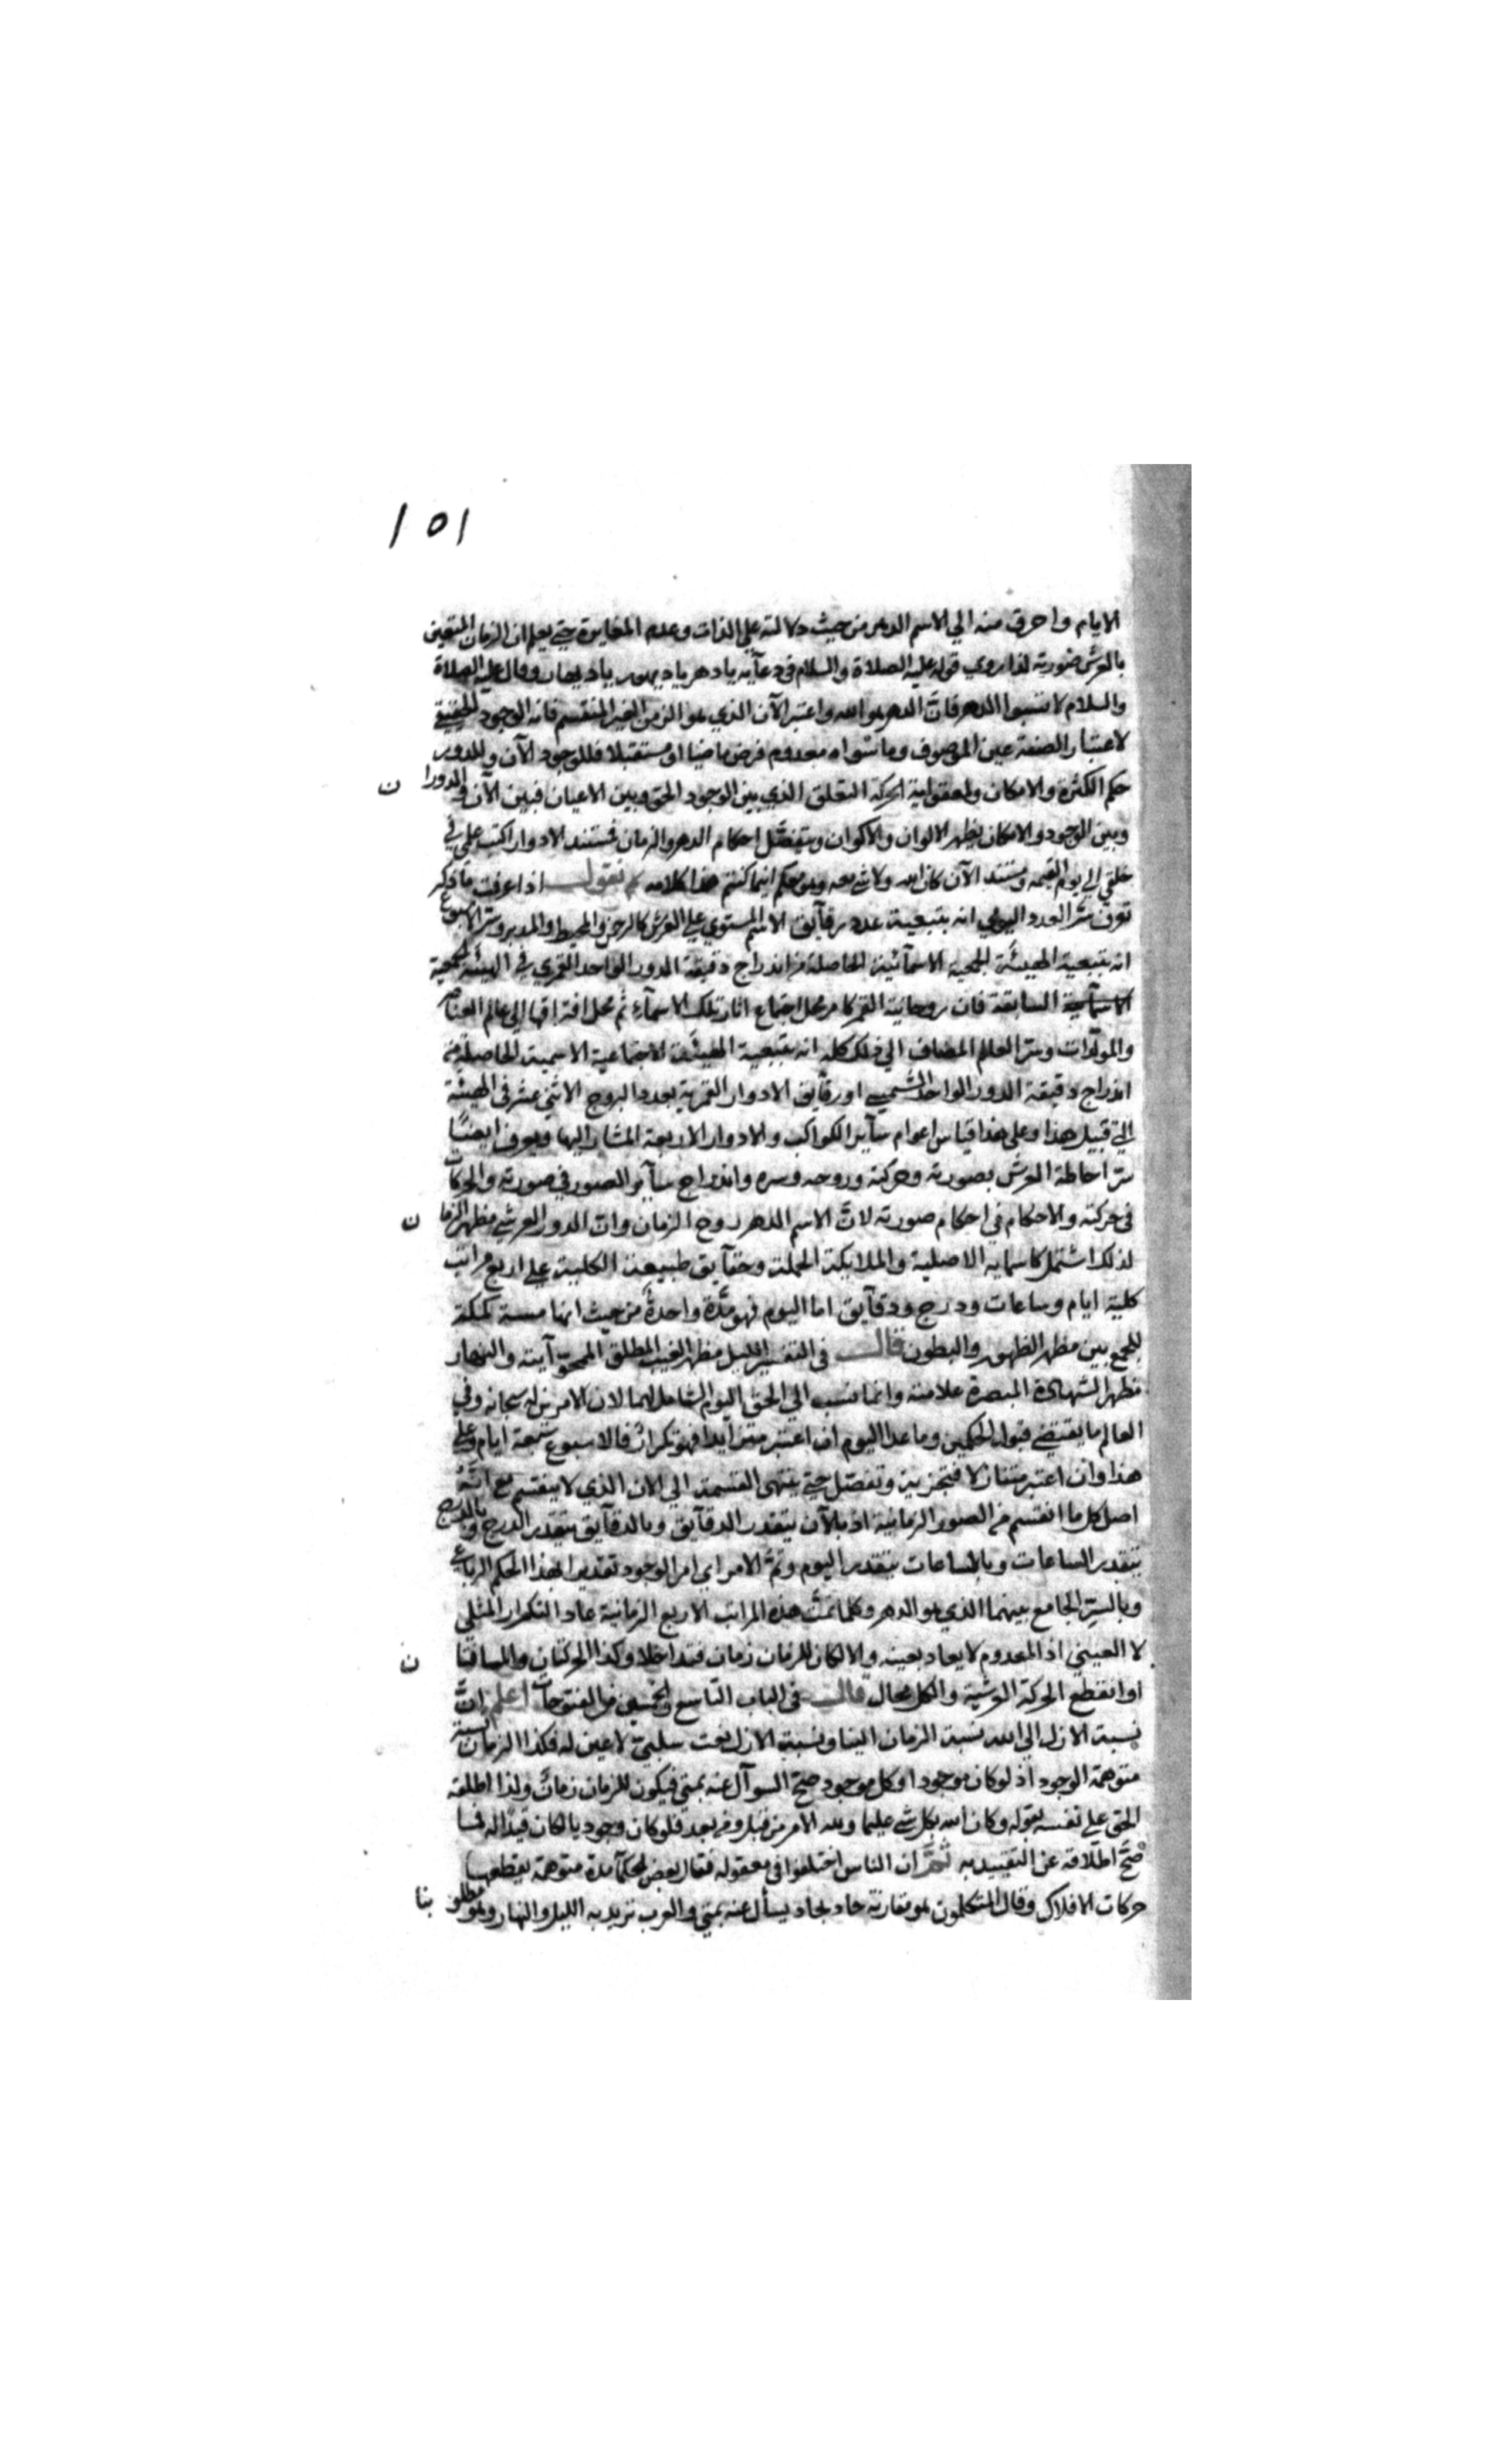 ١٥١
الايام واحرق منه الي الاسم الدهر من حيث دلالته علي الذات وعدم المغايرة حتي يعلم ان الزمان المتعين
بالعرش صورته لذا روي قوله عليه الصلاة والسلام في دعآيه يا دهر يا ديهور يا ديهار وقال عليه الصلاة
والسلام لا تسبوا الدهر فانَّ الدهر هو الله واعتبر الآن الذي هو الزمن الغير المنقسم فانه الوجود الحقيقي
لاعتبار الصفة عين الموصوف وما سواه معدوم فرض ماضيا او مستقبلا فللوجود الآن وللدور
حكم الكثرة والامكان ولمعقولية الحركة التعلق الذي بين الوجود الحق وبين الاعيان فبين الآن والدورا ن
وبين الوجود والامكان يظهر الالوان والاكوان وتتفصَّل احكام الدهر والزمان فمستند الادوار اكتب علمي في
خلقي الي يوم القيمه ومستند الآن كان الله ولا شي معه وهو معكم اينما كنتم هذا كلامه ثم نقول اذا عرفت ما ذكر
تعرف سرَّ العدد اليومي انه بتبعية عدد رقآيق الاسم المستوي علي العرش كالرحمن والمحيط والمدبر وسر الاسبوع
انه بتبعية الهيئَة الجمعية الاسمآئية الحاصلة من اندراج دقيقة الدور الواحد القمري في الهيئة الجمعية
الاسمآئية السابقة فان روحانية القمر كا مر محل اجتماع اثار تلك الاسمآء ثم محل افتراقها الي عالم العناصر
والمولّدات وسر العلم المضاف الي فلك كله انه بتبعية الهيئَة الاجتماعية الاسمية الحاصلة من
اندراج دقيقة الدور الواحد الشمسي او رقآيق الادوار القمرية بعدد البروج الاثني عشر في الهيئة
التي قبيل هذا وعلي هذا قياس اعوام سآير الكواكب والادوار الاربعة المشار اليها ويعرف ايضًا
سرّ احاطة العرش بصورته وحركته وروحه وسره واندراج سآير الصور في صورته والحركات
في حركته والاحكام في احكام صورته لانَّ الاسم الدهر روح الزمان وان الدور العرشي مظهر الزما ن
لذلك اشتمل كاسمايه الاصلية والملايكة الحملة وحقآيق طبيعته الكلية علي اربع مراتب
كلية ايام وساعات ودرج ودقآيق اما اليوم فهو مدَّة واحدةٌ من حيث انها
للجمع بين مظهر الظهور والبطون قال في التفسير الليل مظهر الغيب المطلق الممحوّ آيته والنهار
مظهر الشهادة المبصرة علامته وانما نسب الي الحق اليوم الشامل لهما لان الامرين له سبحانه وفي
العالم ما يقتضي قبول الحكمين وما عدا اليوم ان اعتبر متزايدا فهو تكرار فالاسبوع سبعة ايام وعلي
هذا وان اعتبر متنازلا فتجزية وتفصّل حتي ينتهي القسمة الي الان الذي لا ينقسم مع انَّهُ
اصل كل ما انقسم من الصور الزمانية اذ بالآن يتقدر الدقآيق وبالدقآيق يتقدر الدرج وبالدرج
يتقدر الساعات وبالساعات يتقدر اليوم وتمَّ الامر اي امر الوجود تقديرا بهذا الحكم الرباعي
وبالسرّ الجامع بينهما الذي هو الدهر وكلما تمتْ هذه المراتب الاربع الزمانية عاد التكرار المثلي
لا العيني اذ المعدوم لا يعاد بعينه والا لكان للزمان زمان فتداخلا وكذا الحركتان والمسافتا ن
او انقطع الحركة العرشية والكل محال قال في الباب التاسع والخمسين من الفتوحات اعلم انَّ
نسبة الازل الي الله نسبة الزمان الينا ونسبة الازل نعت سلبيّ لا عين له فكذا الزمان نسبة
متوهمة الوجود اذ لو كان موجودا وكل موجود صحَّ السوآل عنه بمتي فيكون للزمان زمانٌ ولذا اطلقه
الحق علي نفسه بقوله وكان الله بكل شي عليما ولله الامر من قبل ومن بعد فلو كان وجوديا لكان قيدًا له فما
صَحَّ اطلاقه عن التقييد به ثمَّ ان الناس اختلفوا في معقوله فقال بعض الحكمآ مدة متوهمة يقطعها
حركات الافلاك وقال المتكلمون هو مقارنة حادث لحادث يسأل عنه بمتي والعرب تريد به الليل والنهار وهو مطلو بنا